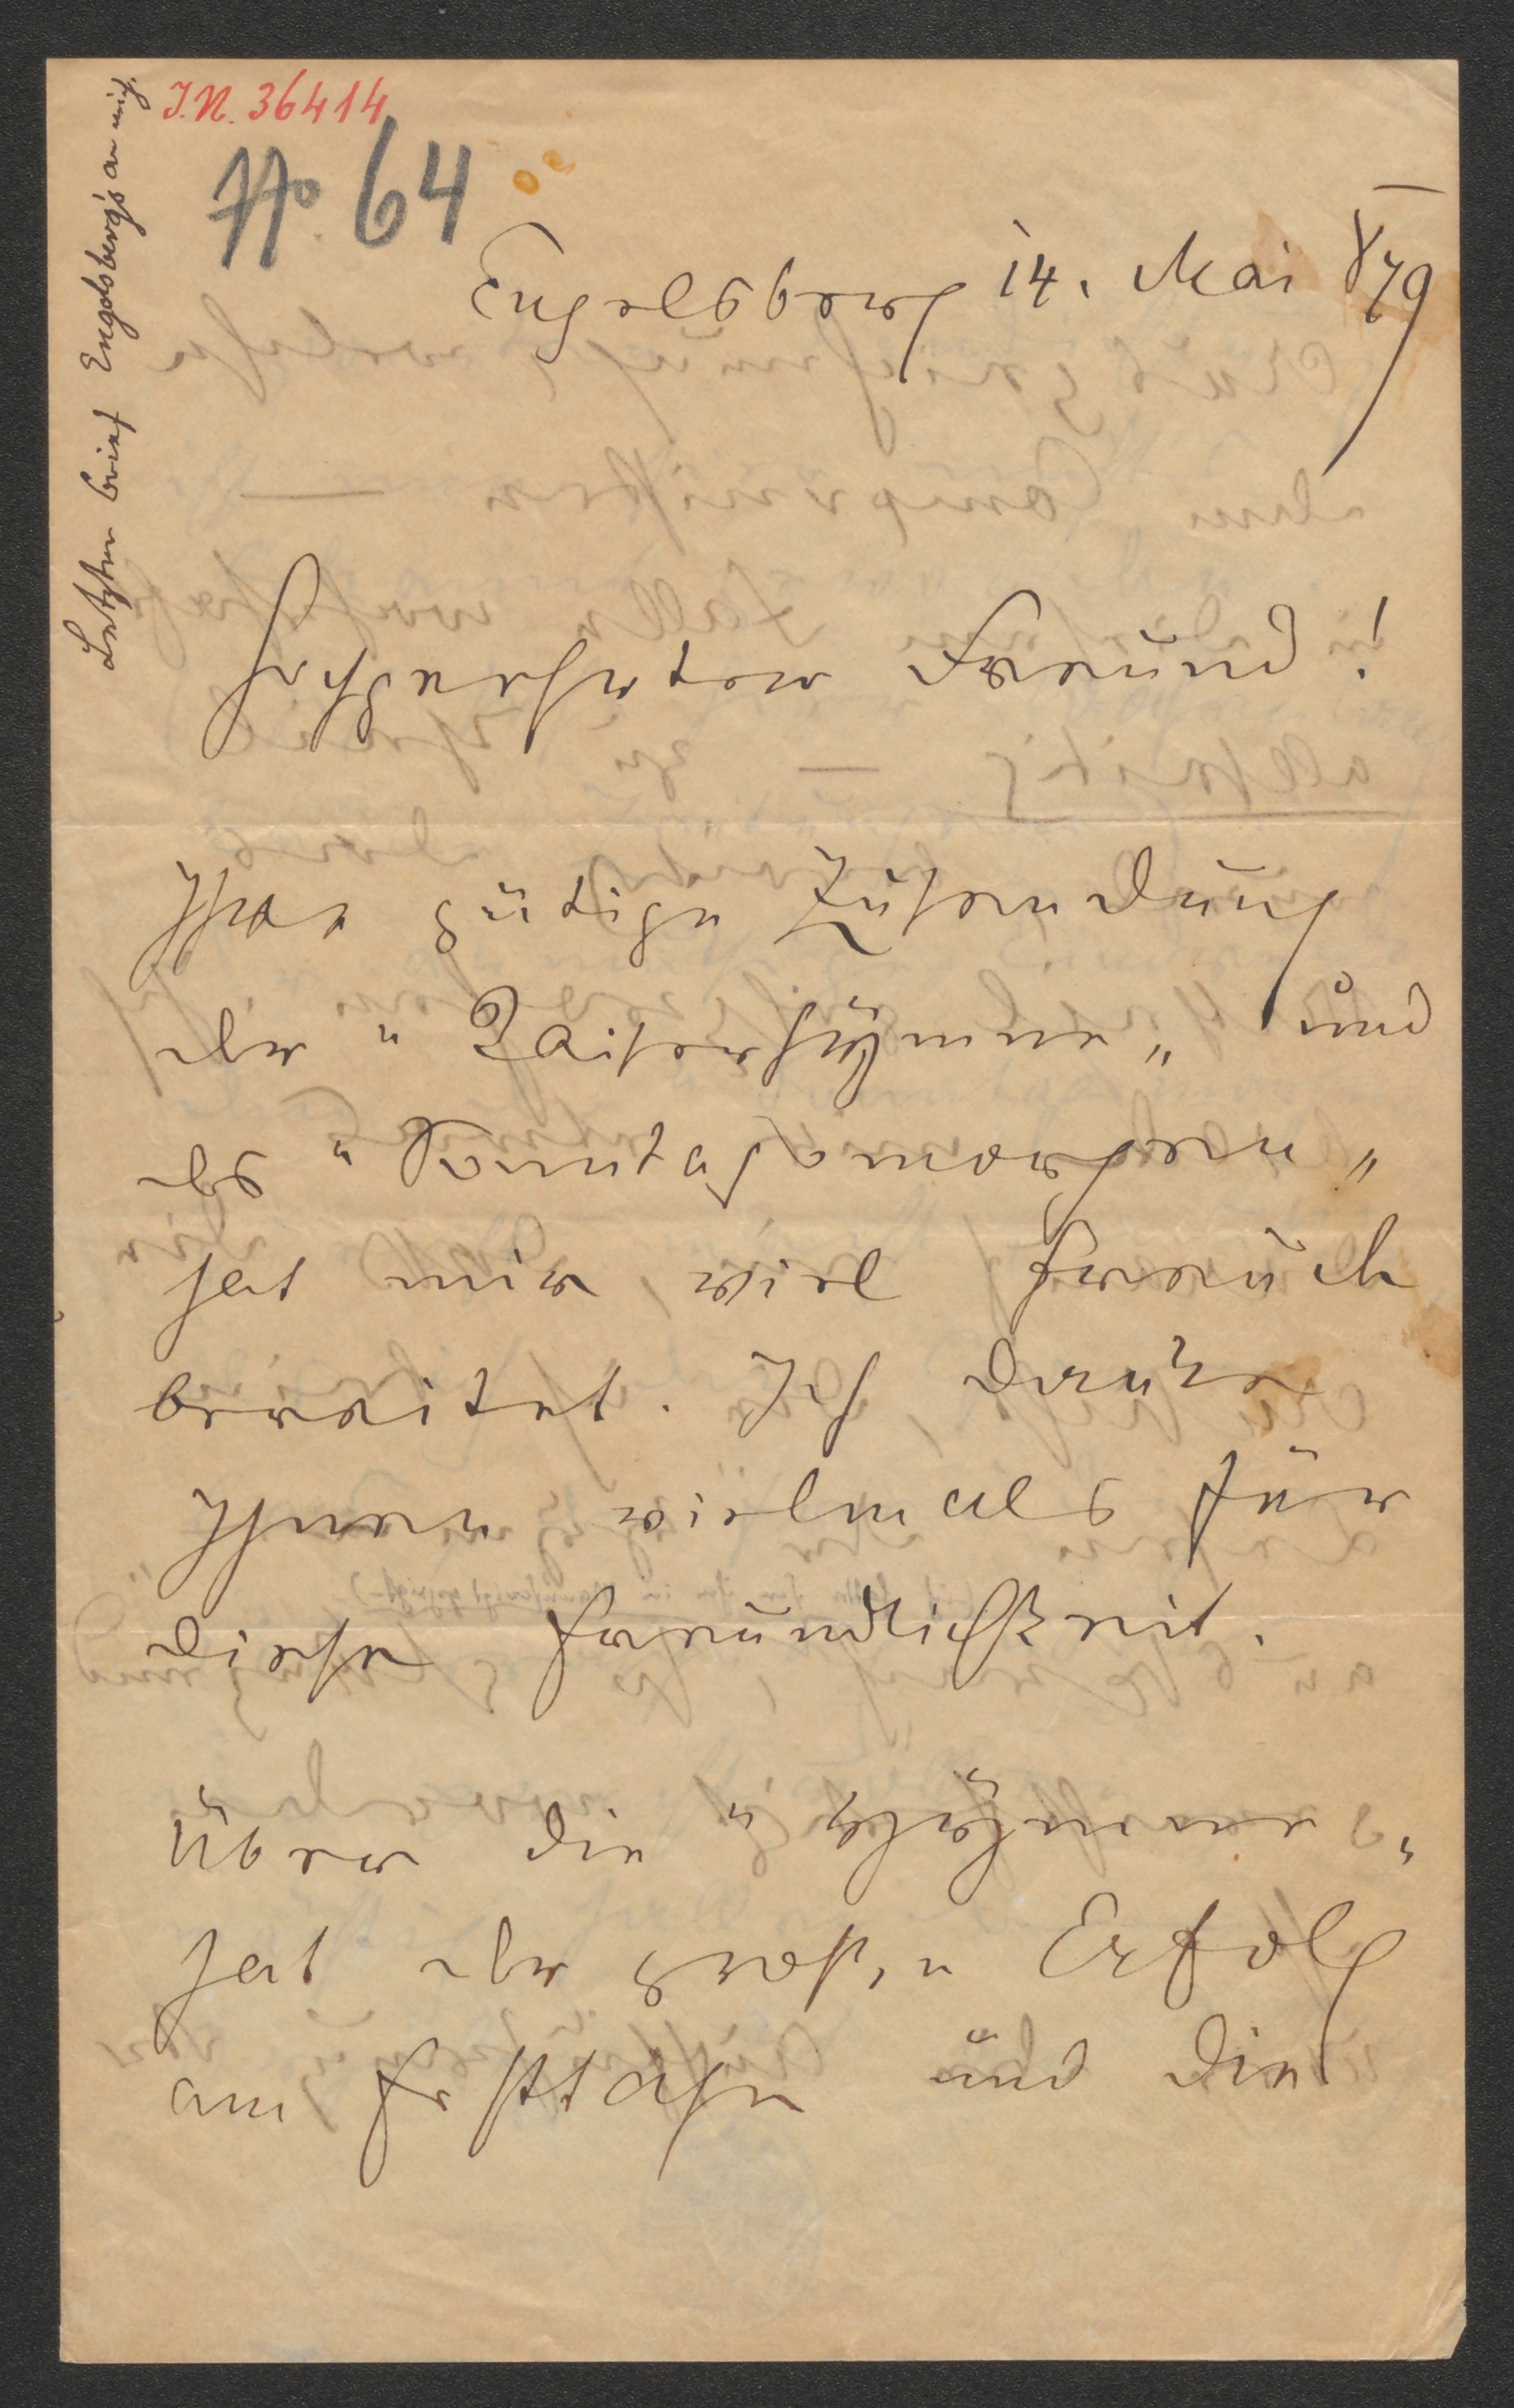 J.N. 36414
No. 64
Letzter Brief Engelsberg's an mich.
Engelsberg 14. Mai 879
Hochgeehrter Freund!
Ihre gütige Zusendung
der "Kaiserhymne" und
des "Sonntagsmorgen"
hat mir viel Freude
bereitet. Ich danke
Ihnen vielmals für
diese Freundlichkeit.
Über die "Hymne"
hat der große Erfolg
am Festtage und die